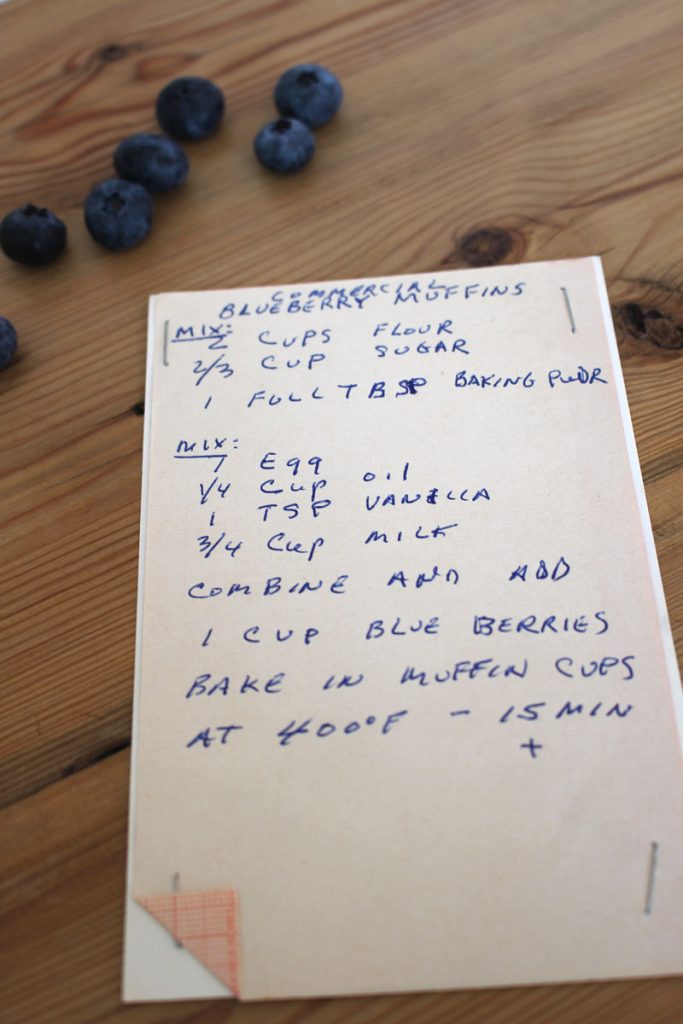 COMMERCIAL
BLUEBERRY MUFFINS
MIX:
2 CUPS FLOUR
2/3 CUP SUGAR
1 FULL TBSP BAKING PWDR
MIX:
1 Egg
1/4 Cup oil
1 TSP VANILLA
3/4 Cup MILK
COMBINE AND ADD
1 CUP BLUE BERRIES
BAKE IN MUFFIN CUPS
AT 400°F - 15 MIN
+